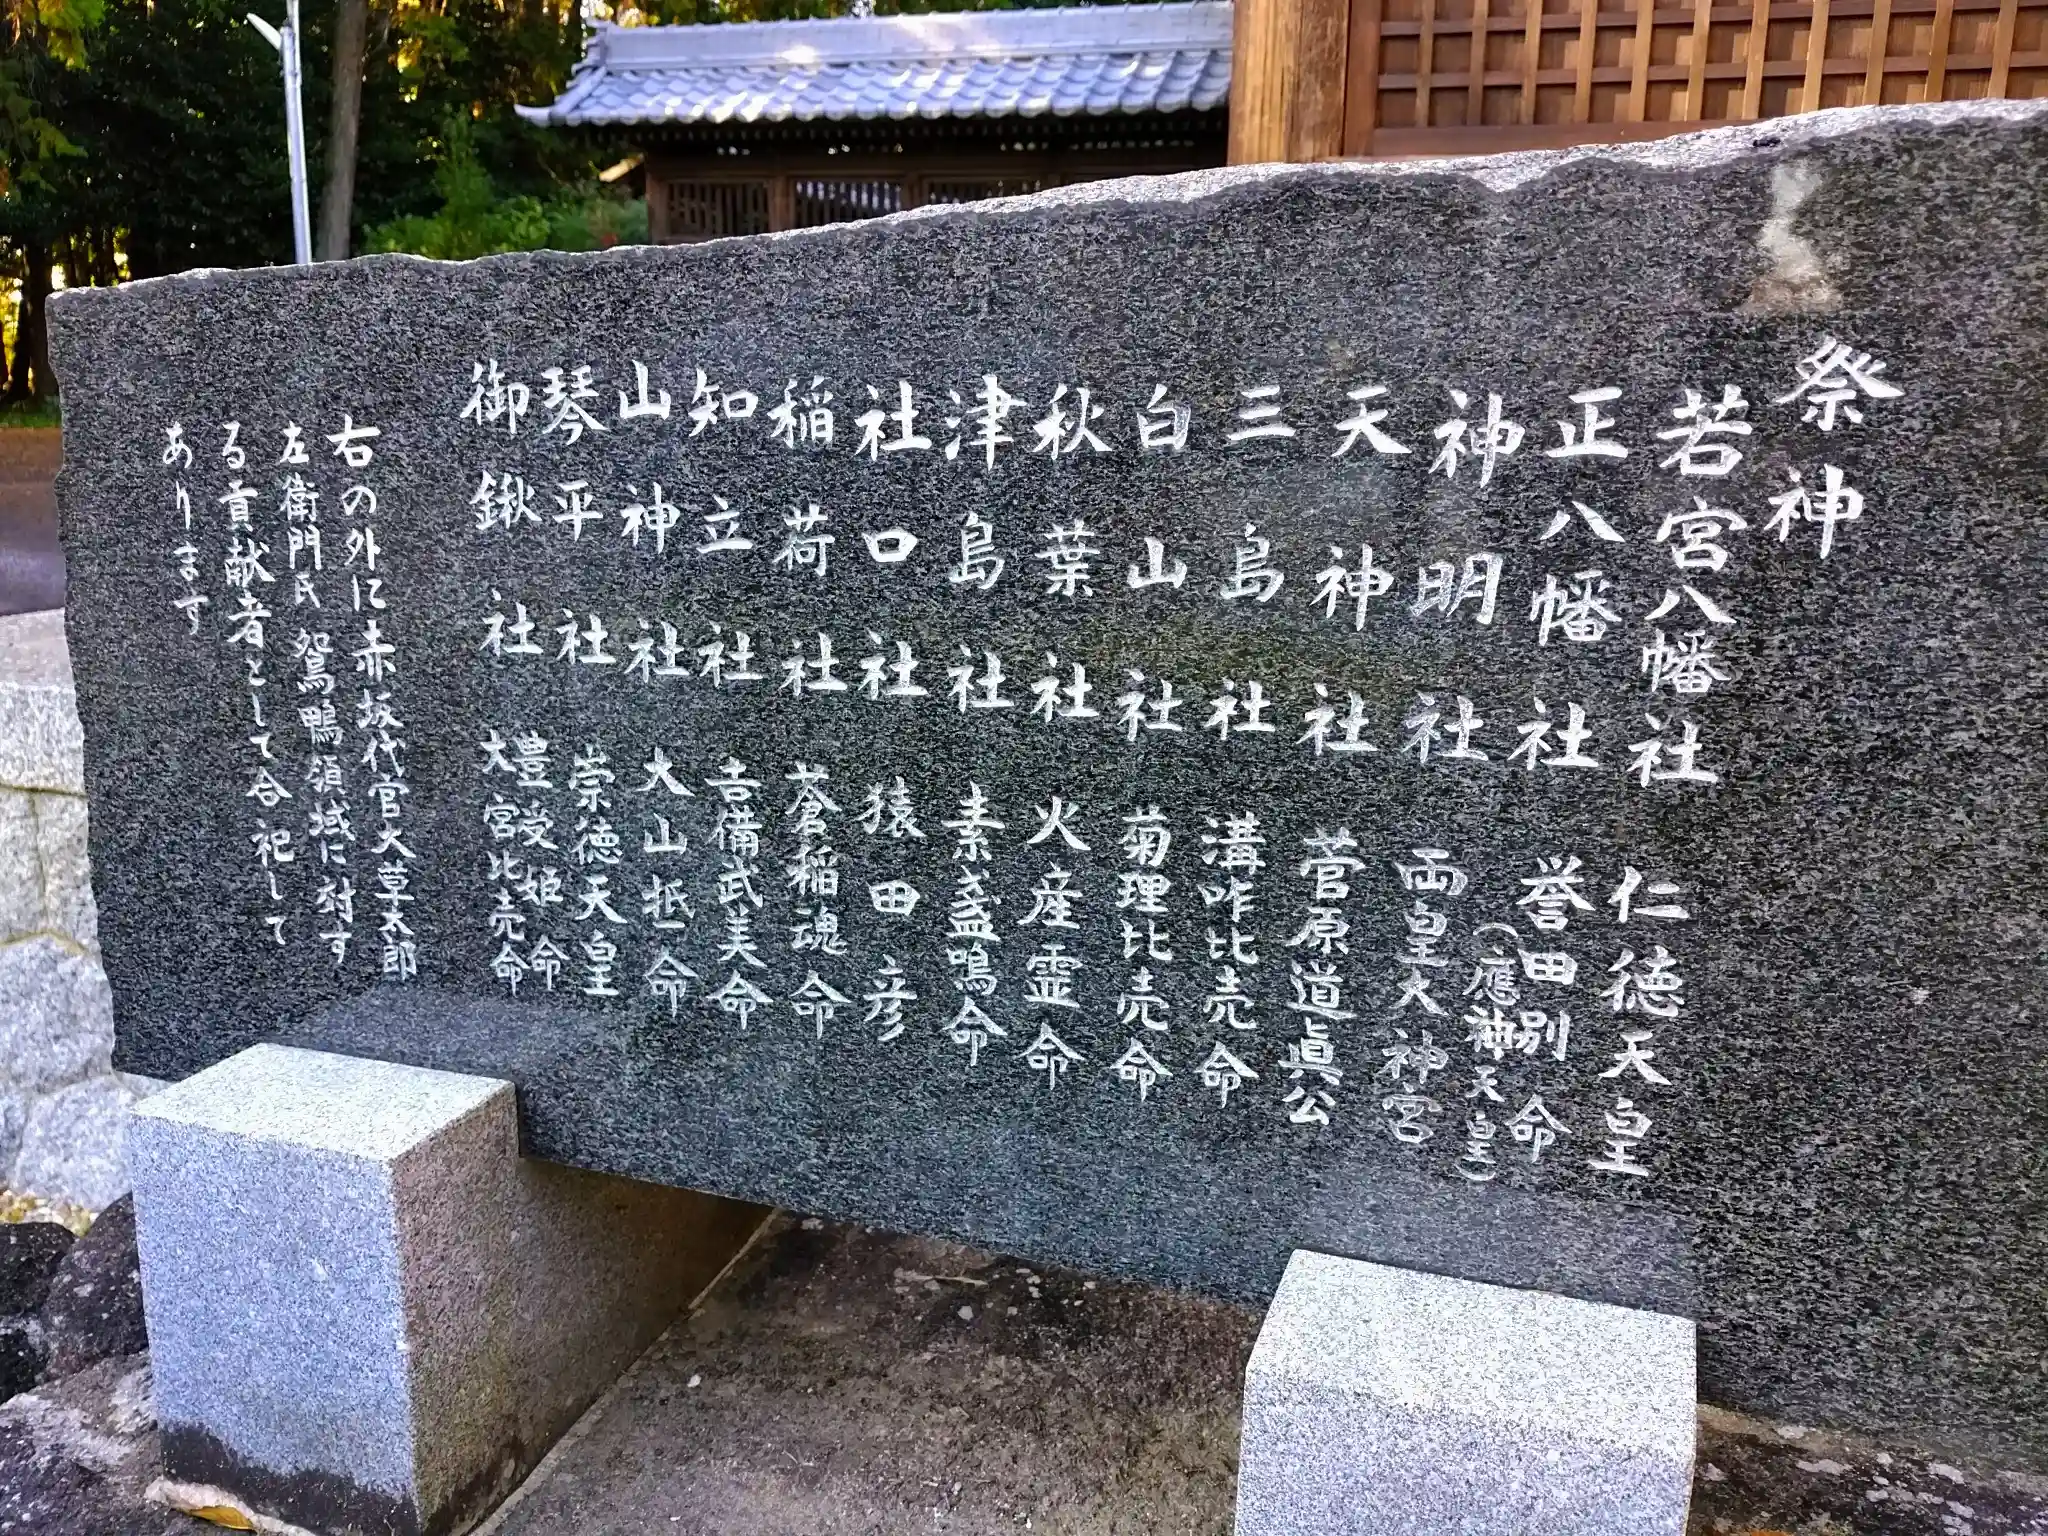 祭神
若宮八幡社 仁徳天皇
正八幡社 誉田別命
（應神天皇）
神明社 両皇大神宮
天神社 菅原道眞公
三島社 溝咋比売命
白山社 菊理比売命
秋葉社 火産霊命
津島社 素戔鳴命
社口社 猿田彦
稲荷社 蒼稲魂命
知立社 吉備武美命
山神社 大山抵命
琴平社 崇徳天皇
御鍬社 豊受姫命
大宮比売命
右の外に赤坂代官大草太郎
左衛門氏 鴛鴨領域に対す
る貢献者として合祀して
あります